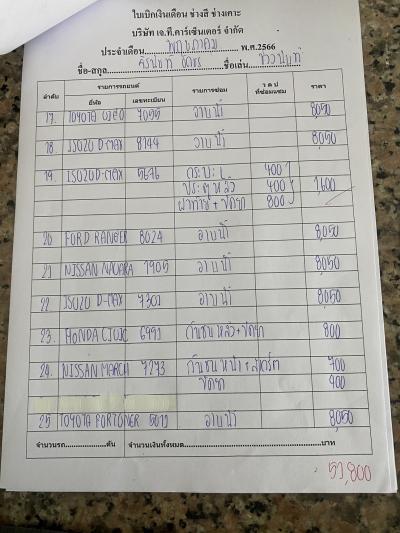 ใบเบิกเงินเดือน ช่างสี ช่างเคาะ
บริษัท เจ.ที.คาร์เซ็นเตอร์ จำกัด
ประจำเดือน พฤษภาคม พ.ศ.2566
ชื่อ-สกุล ชื่อเล่น
ลำดับ รายการรถยนต์ รายการซ่อม ว ด ป ที่ซ่อมแซม ราคา
ยี่ห้อ เลขทะเบียน
17. TOYOTA 7055 อาบน้ำ 8,050
18. ISUZU D-MAX 8744 อาบน้ำ 8,050
19. ISUZU D-MAX 5676 กระบะ L 400
ประตูหลัง 400 1,600
800
20 FORD RANGER 8024 อาบน้ำ 8,050
21 NISSAN NAVARA 7905 อาบน้ำ 8,050
22 ISUZU D-MAX 7302 อาบน้ำ 8,050
23. HONDA CIVIC 6992 กันชนหลัง+ขัดรถ 800
24. NISSAN MARCH 7273 กันชนหน้า+สเกิร์ต 700
ขัดรถ 400
25 TOYOTA FORTONER 5072 อาบน้ำ 8,050
จำนวนรถ คัน จำนวนเงินทั้งหมด บาท
53,800